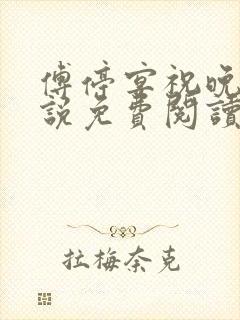 傅停宴祝晚
說免費閱讀
拉梅奈克